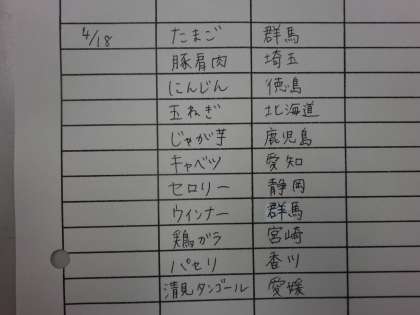 4/18 たまご 群馬
豚肩肉 埼玉
にんじん 徳島
玉ねぎ 北海道
じゃが芋 鹿児島
キャベツ 愛知
セロリー 静岡
ウインナー 群馬
鶏ガラ 宮崎
パセリ 香川
清見タンゴール 愛媛